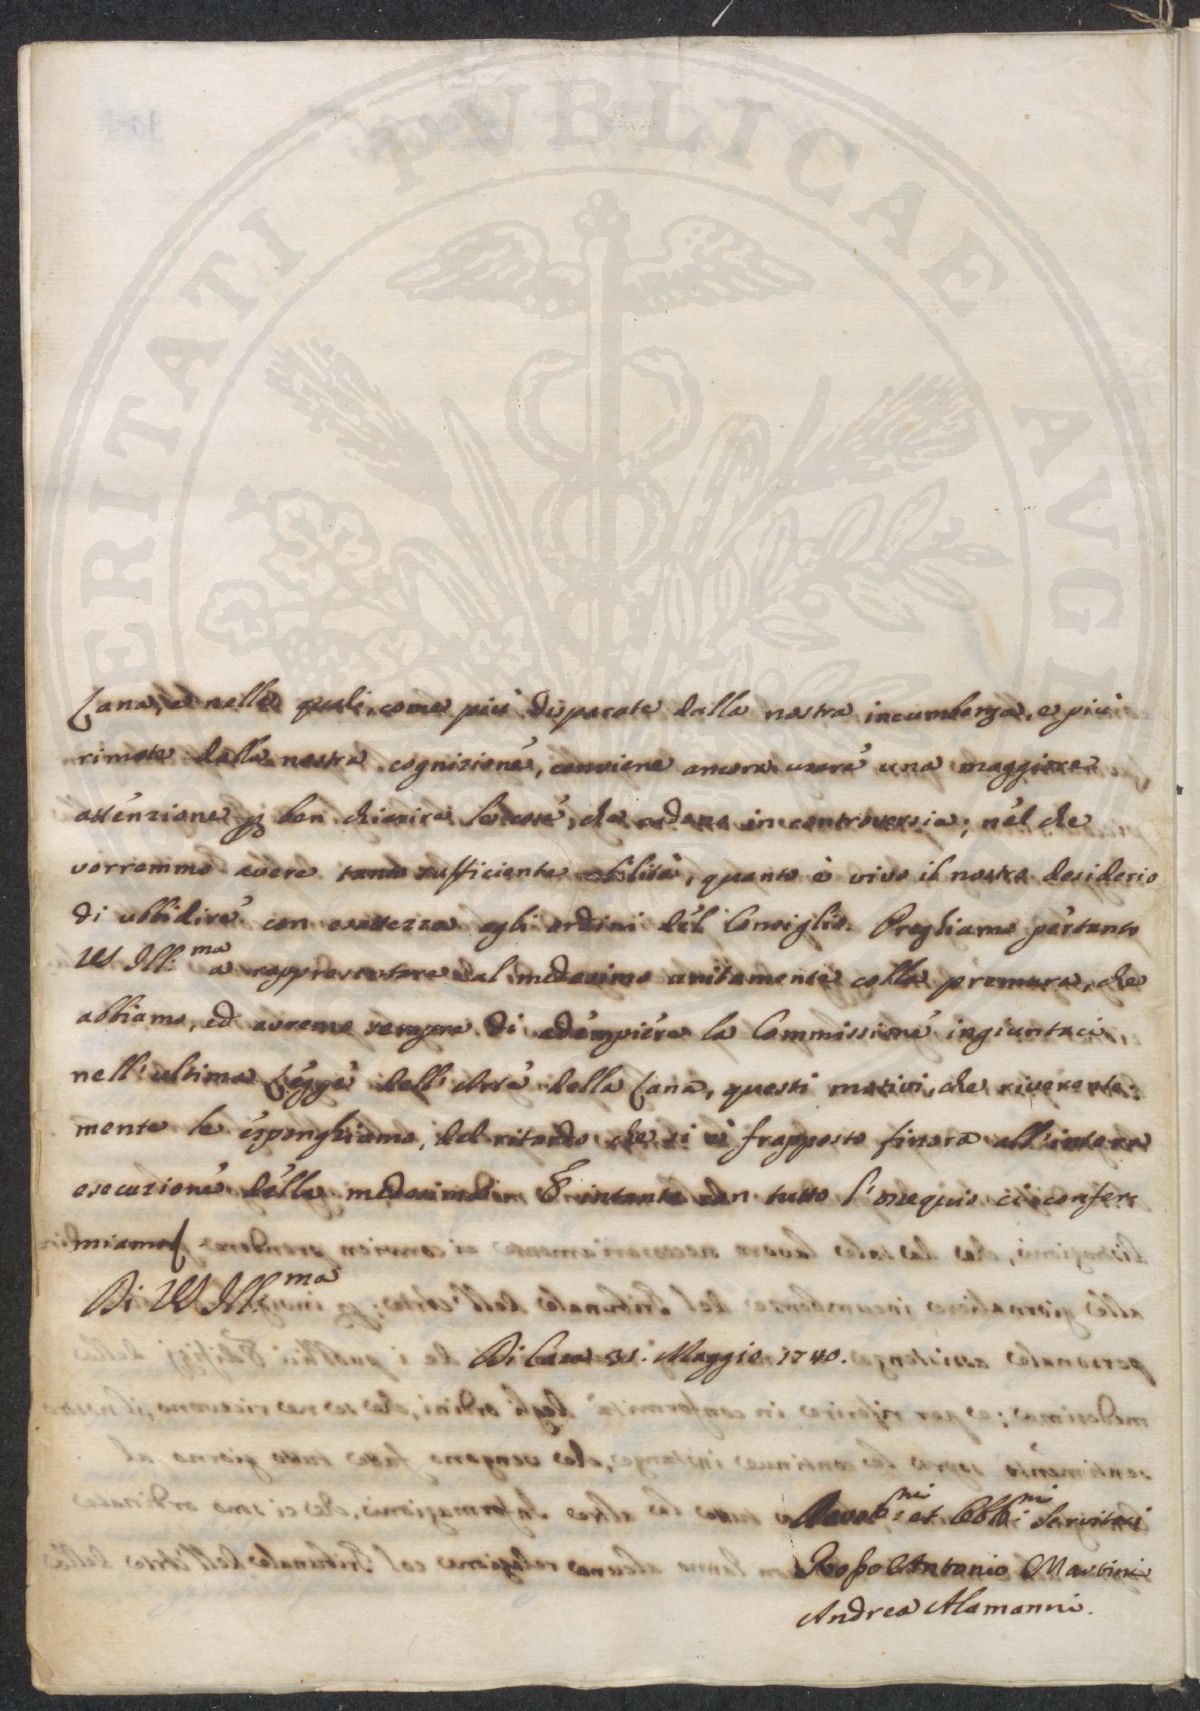 PVBLICAE
ERITATI
AVG
Lana, e nelle quali, come più disparate dalla nostra incumbenza, e più
rimote dalla nostra cognizione, conviene ancora usare una maggiore
attenzione p ben chiarire le cose, che cadono in controversia; nel che
vorremmo avere tanta sufficiente abilità, quanto è vivo il nostro desiderio
di ubbidire con esattezza agli ordini del Consiglio. Preghiamo pertanto
VS Ill:ma a rappresentare al medesimo unitamente colla premura, che
abbiamo, ed avremo sempre di adempiere la Commissione ingiuntaci
nell'ultima Legge dell'Arte della Lana, questi motivi, che riverente:
mente le esponghiamo, del ritardo che si è frapposto finora all'intera
esecuzione della medesima. E intanto con tutto l'ossequio ci confer:
miamo
Di VS Ill:ma
Di Casa 31. Maggio 1740.
Devot:mi et Obb:mi Servitori
Rosso Antonio Martini
Andrea Alamanni.